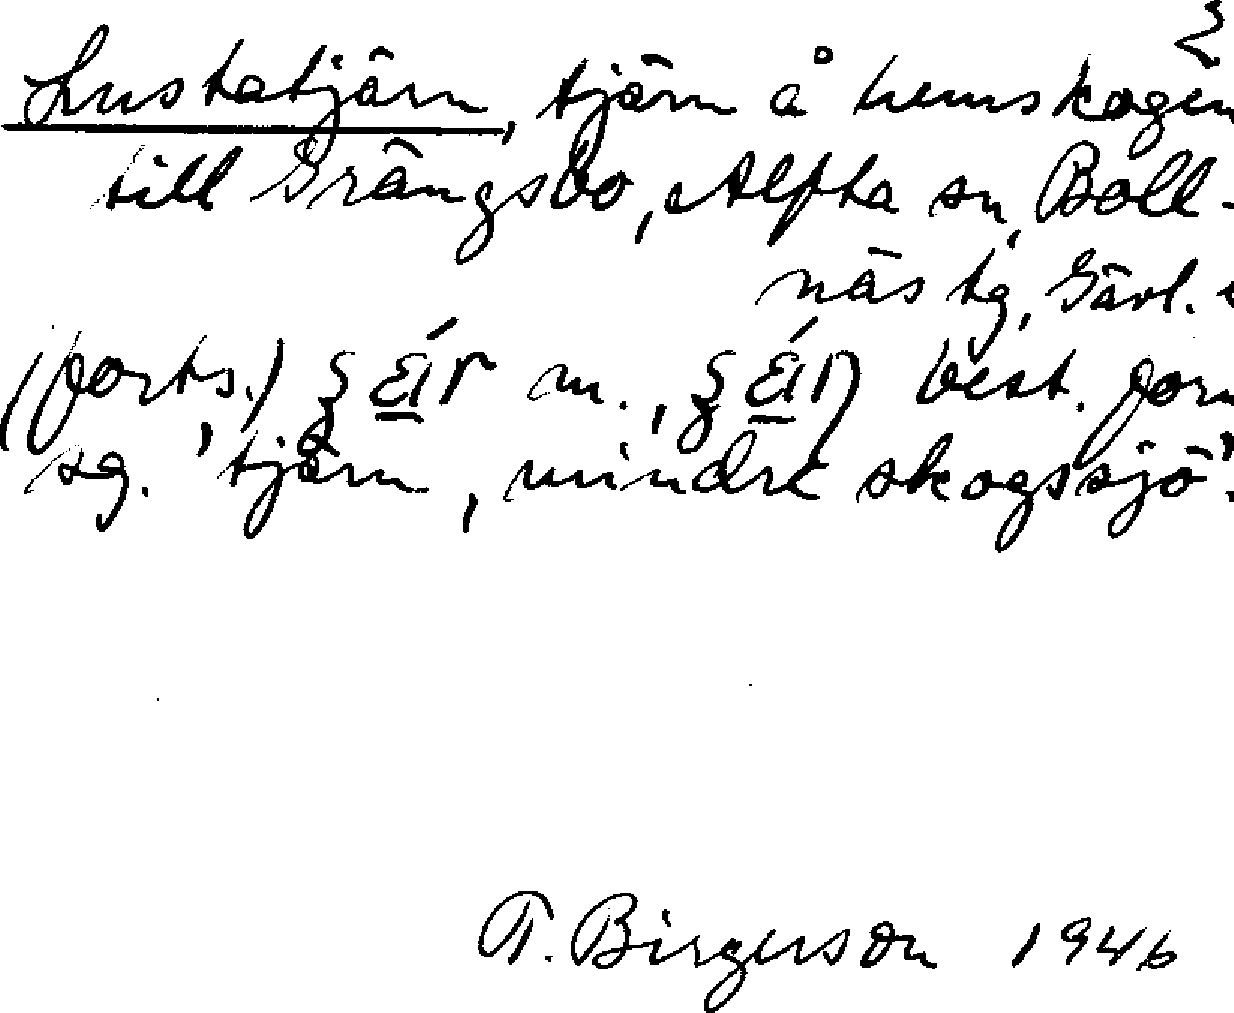 2
Lustatjärn, tjärn å hemskogen
till Grängsbo, Alfta sn, Boll-
näs tg, Gävl.
(forts.) m., best. form
sg. 'tjärn, mindre skogssjö'.
T. Birgerson 1946